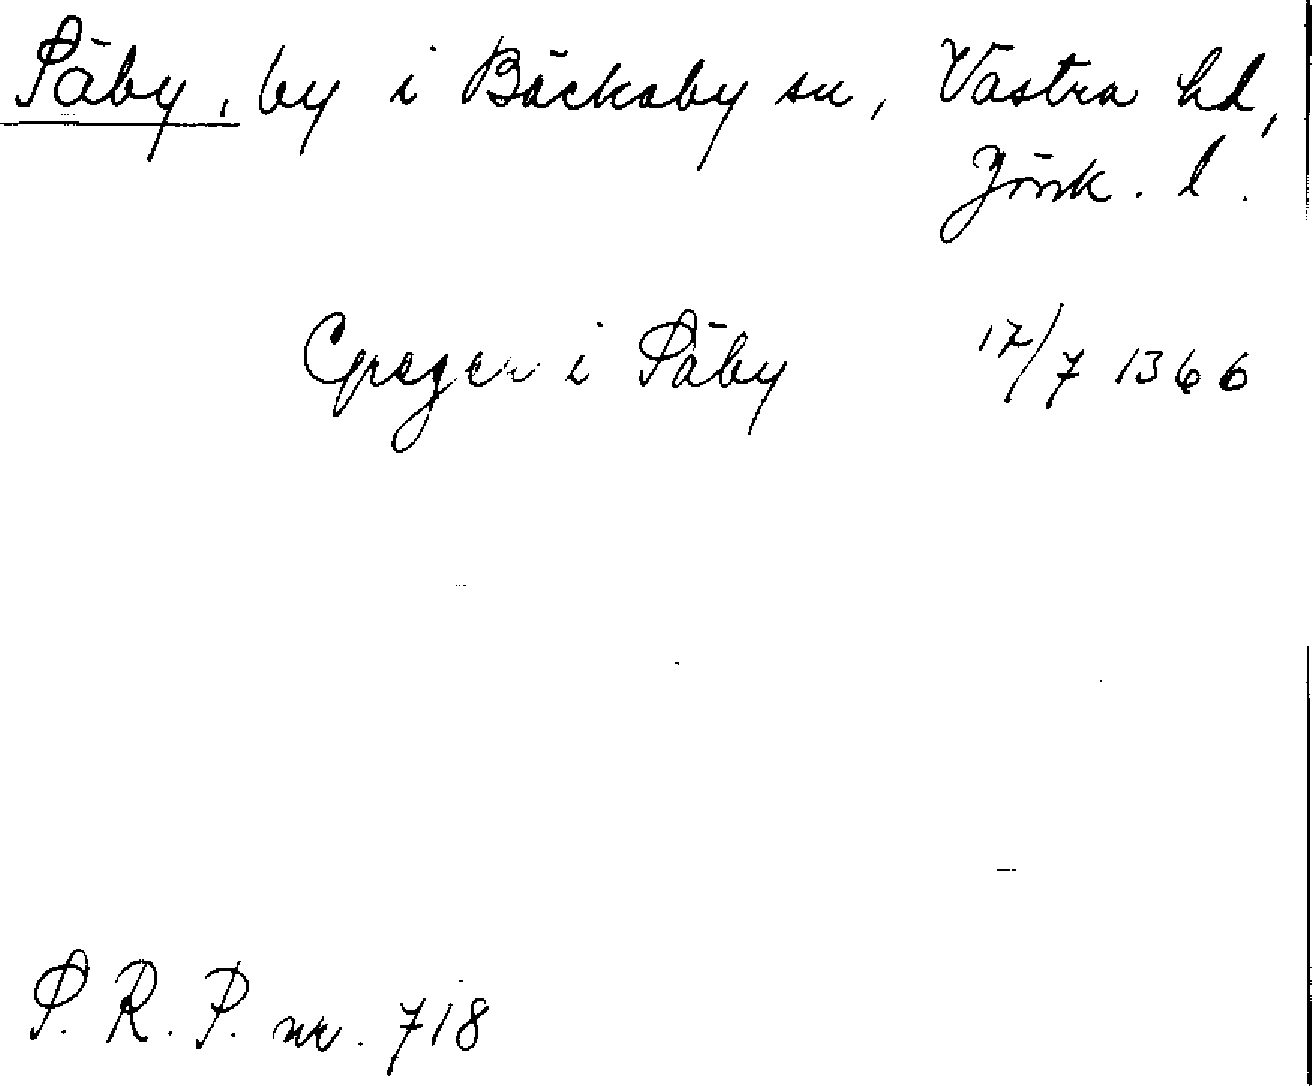 Päby, by i Bäckaby sn, Västra hd,
Jönk. l.
Greger i Päby 17/7 1366
P. R. P. nr. 718